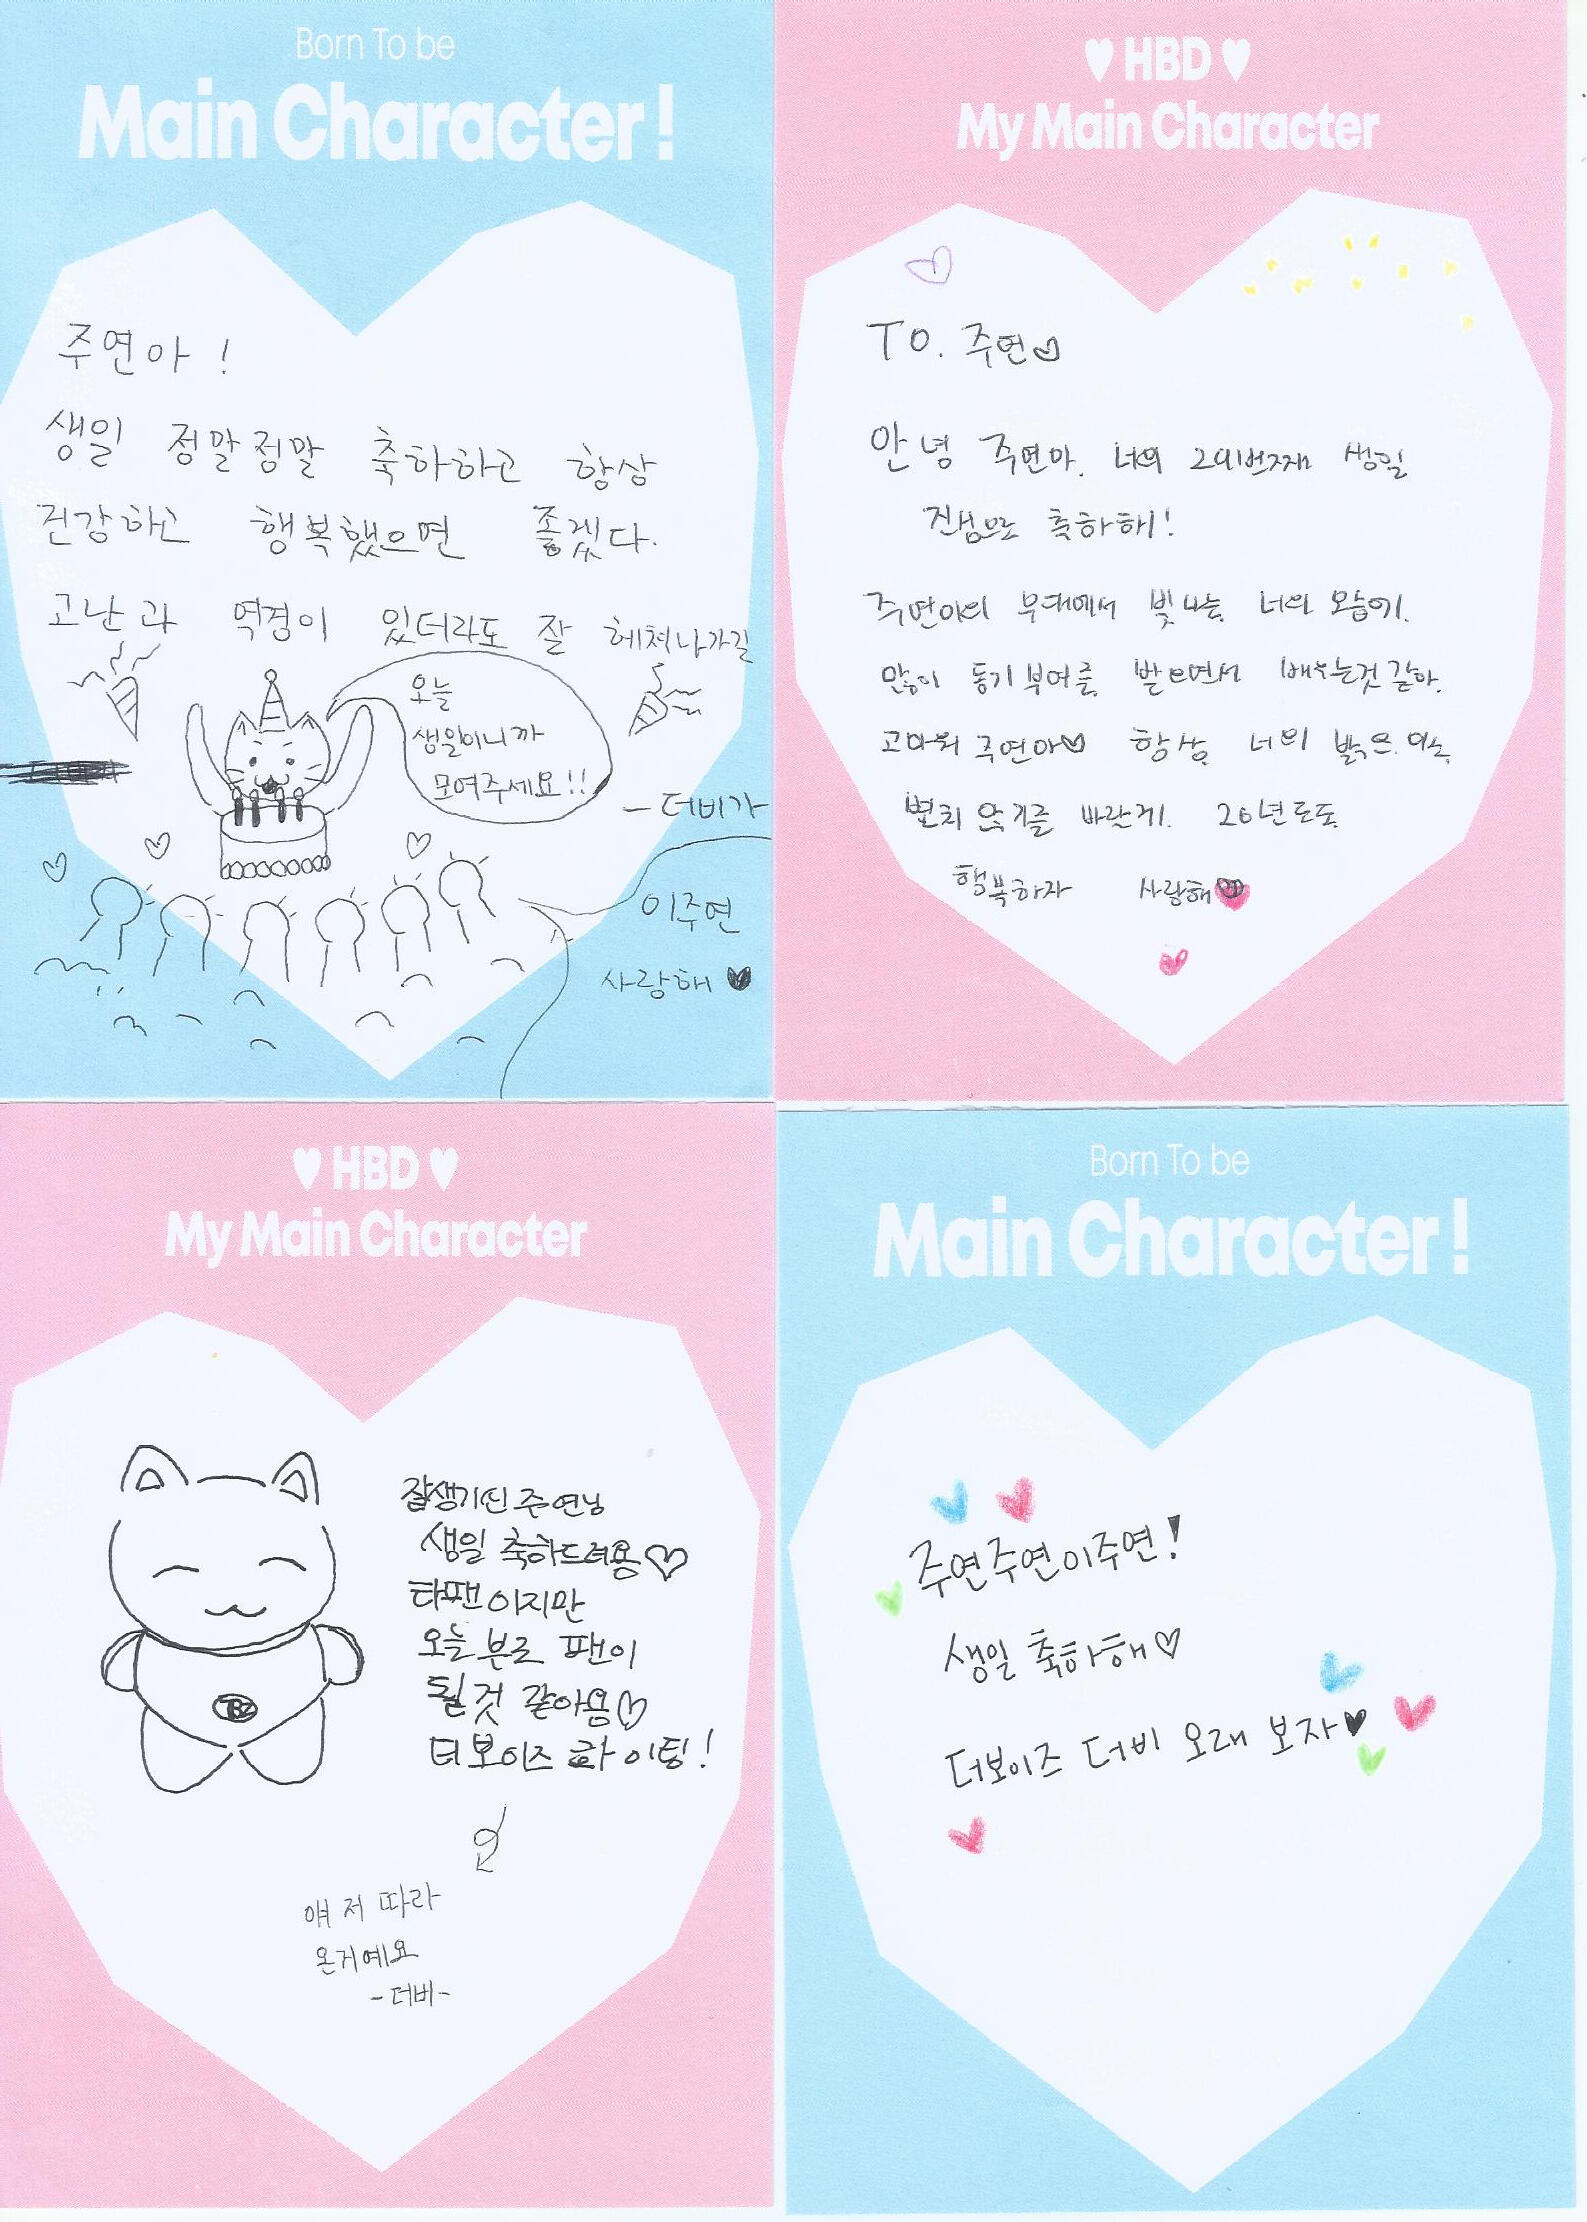 Born To be
Main Character!
주연아!
생일 정말정말 축하하고 항상
건강하고 행복했으면 좋겠다.
고난과 역경이 있더라도 잘 헤쳐나가길
오늘
생일이니까
모여주세요!!
-더비가
이주연
사랑해♥
♥ HBD ♥
My Main Character
TO. 주연♡
안녕 주연아. 너의 번째 생일
진심으로 축하해!
주연아의 무대에서 빛나는 너의 모습이.
많이 동기부여를 받으면서 배우는것 같아.
고마워 주연아♡ 항상 너의 밝은 미소
변치 않기를 바랄게. 26년도도
행복하자 사랑해♥
♥ HBD ♥
My Main Character
잘생기신 주연님
생일 축하드려용♡
타팬이지만
오늘부로 팬이
될것 같아용♡
더보이즈 화이팅!
TBZ
얘 저 따라
온거예요
-더비-
Born To be
Main Character!
주연주연이주연!
생일 축하해♡
더보이즈 더비 오래 보자♥